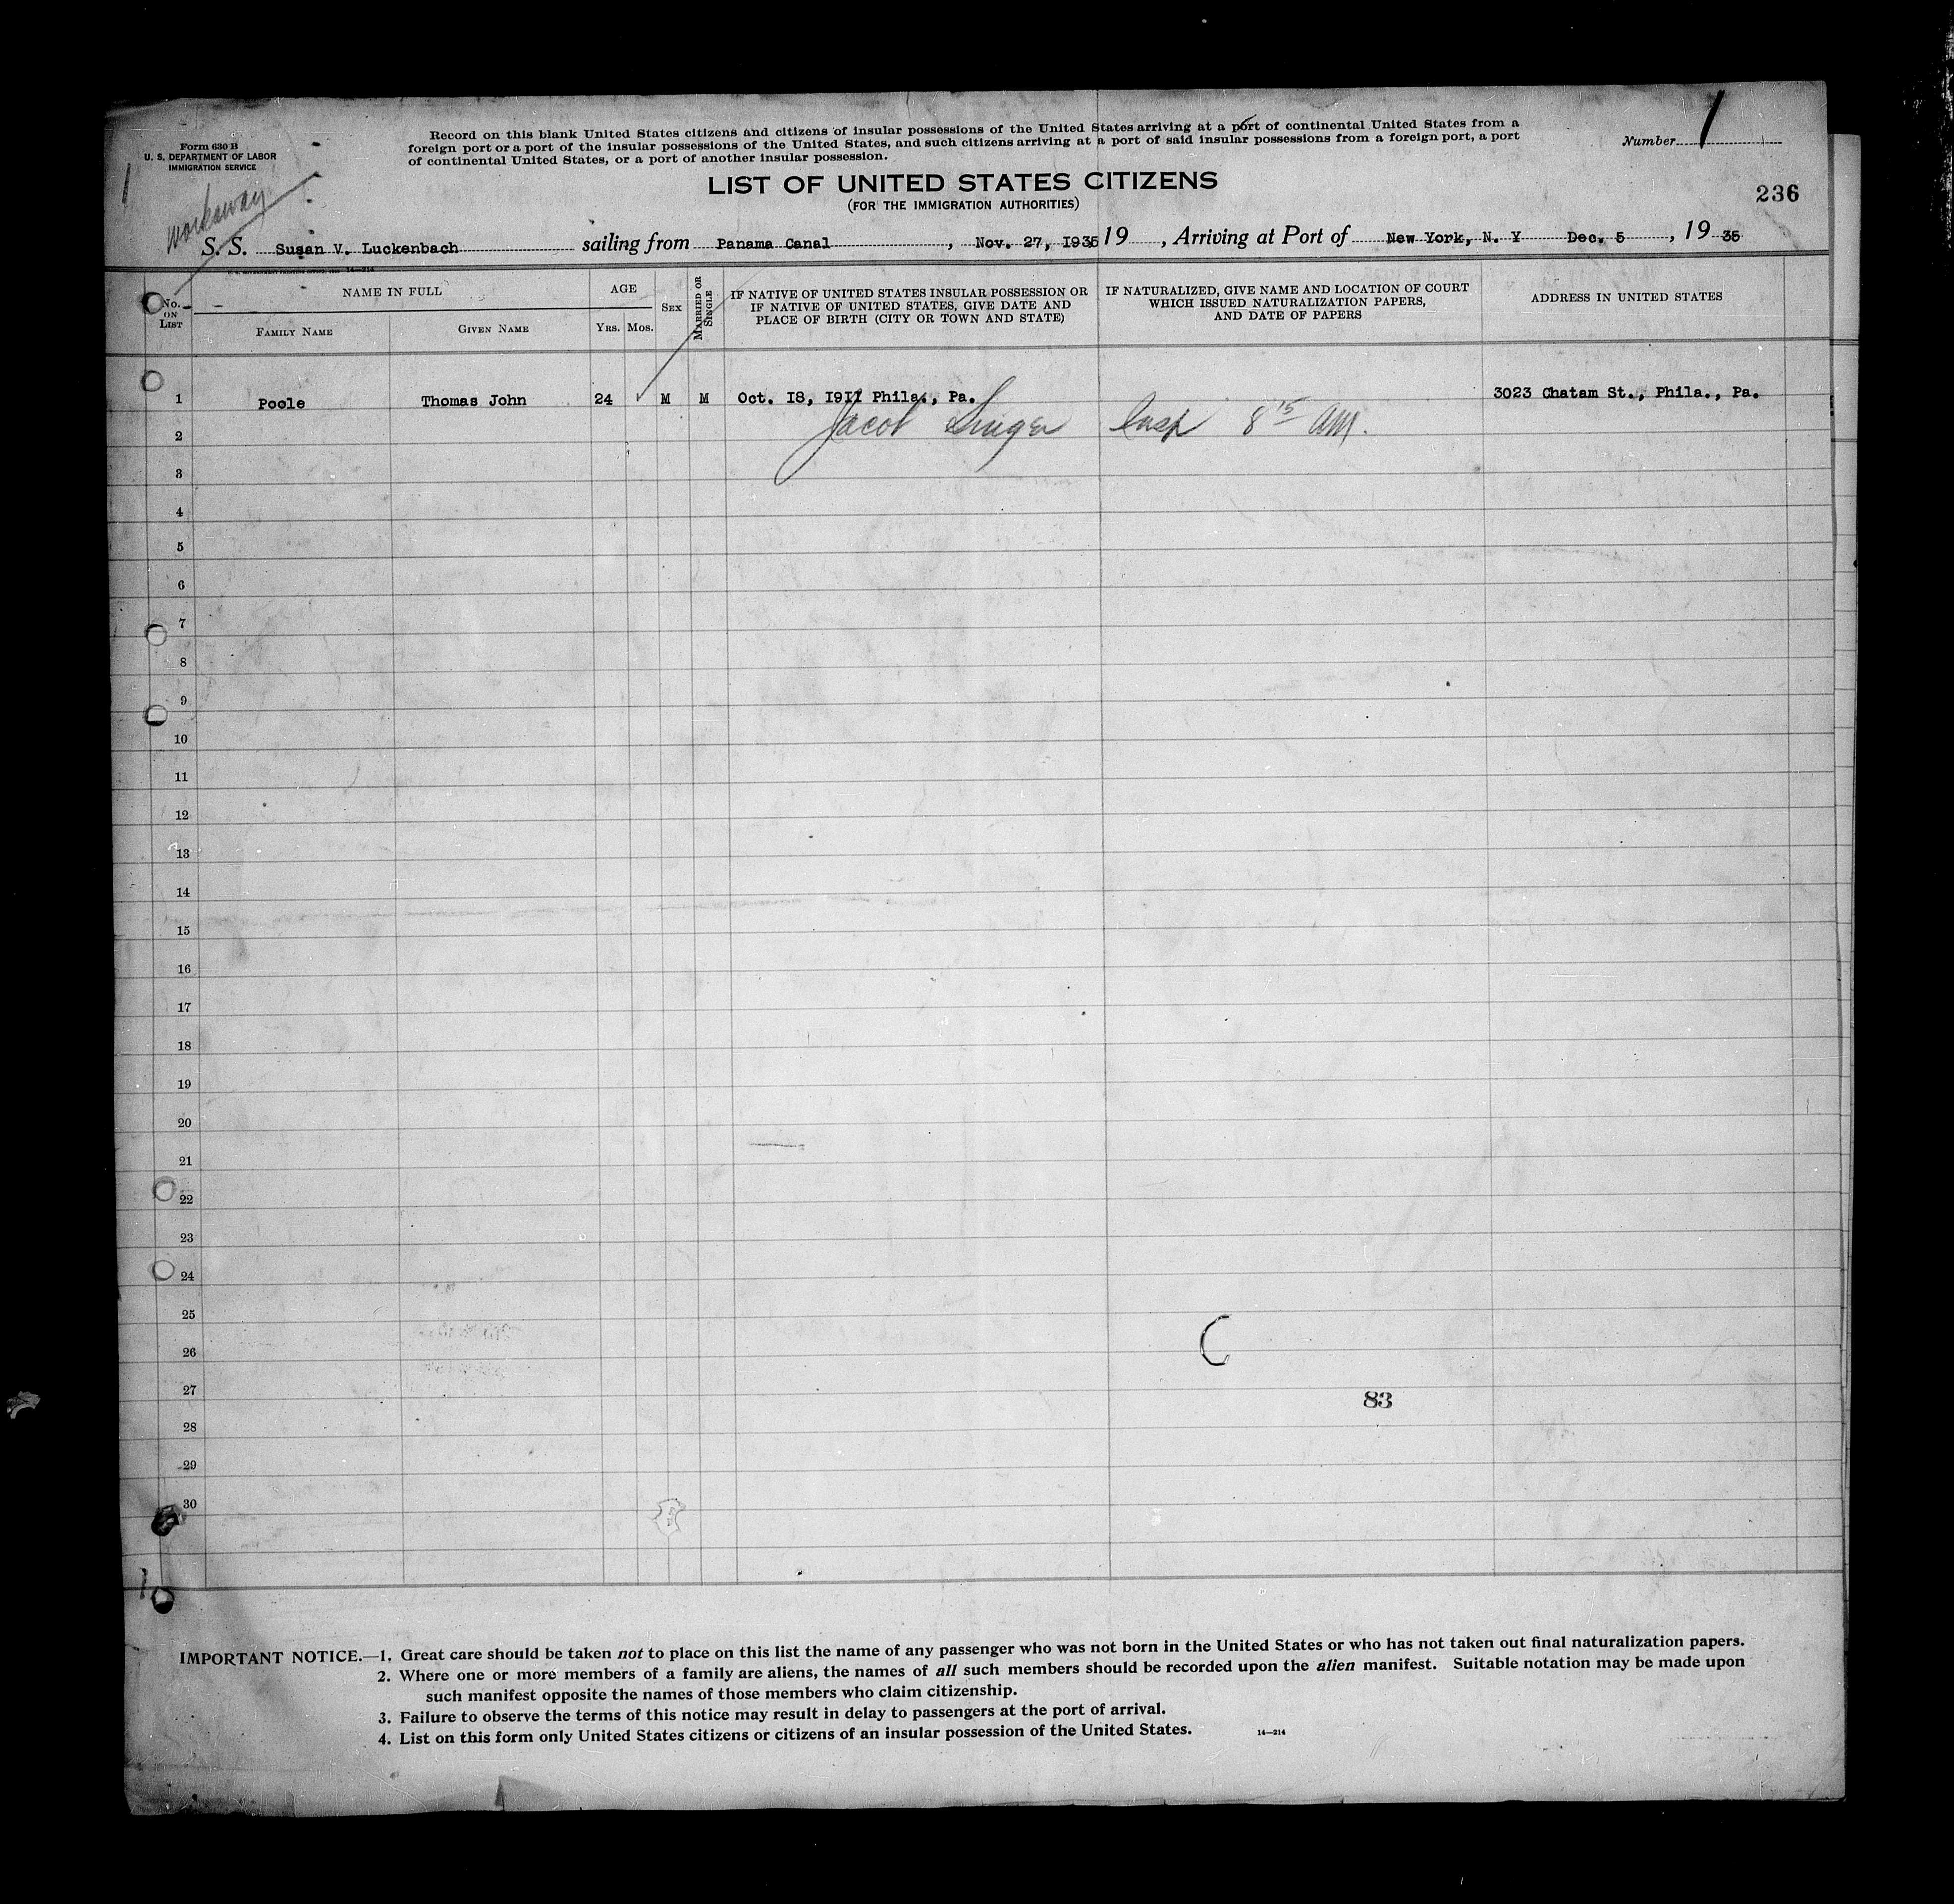 Form 630 B
U. S. DEPARTMENT OF LABOR
IMMIGRATION SERVICE
Record on this blank United States citizens and citizens of insular possessions of the United States arriving at a port of continental United States from a
foreign port or a port of the insular possessions of the United States, and such citizens arriving at a port of said insular possessions from a foreign port, a port
of continental United States, or a port of another insular possession.
Number 1
LIST OF UNITED STATES CITIZENS
(FOR THE IMMIGRATION AUTHORITIES)
236
1
workaway
S. S. Susan V. Luckenbach sailing from Panama Canal , Nov. 27, I935 19 , Arriving at Port of New York, N. Y Dec. 5 , 19 35
No. ON LIST
NAME IN FULL
FAMILY NAME
GIVEN NAME
AGE
YRS. MOS.
SEX
MARRIED OR SINGLE
IF NATIVE OF UNITED STATES INSULAR POSSESSION OR
IF NATIVE OF UNITED STATES, GIVE DATE AND
PLACE OF BIRTH (CITY OR TOWN AND STATE)
IF NATURALIZED, GIVE NAME AND LOCATION OF COURT
WHICH ISSUED NATURALIZATION PAPERS,
AND DATE OF PAPERS
ADDRESS IN UNITED STATES
1 Poole Thomas John 24 M M Oct. I8, I9II Phila., Pa. 3023 Chatam St., Phila., Pa.
Jacob Singer Insp 8 15 AM.
2
3
4
5
6
7
8
9
10
11
12
13
14
15
16
17
18
19
20
21
22
23
24
25
26
27
83
28
29
30
IMPORTANT NOTICE.—1. Great care should be taken not to place on this list the name of any passenger who was not born in the United States or who has not taken out final naturalization papers.
2. Where one or more members of a family are aliens, the names of all such members should be recorded upon the alien manifest. Suitable notation may be made upon
such manifest opposite the names of those members who claim citizenship.
3. Failure to observe the terms of this notice may result in delay to passengers at the port of arrival.
4. List on this form only United States citizens or citizens of an insular possession of the United States. 14—214